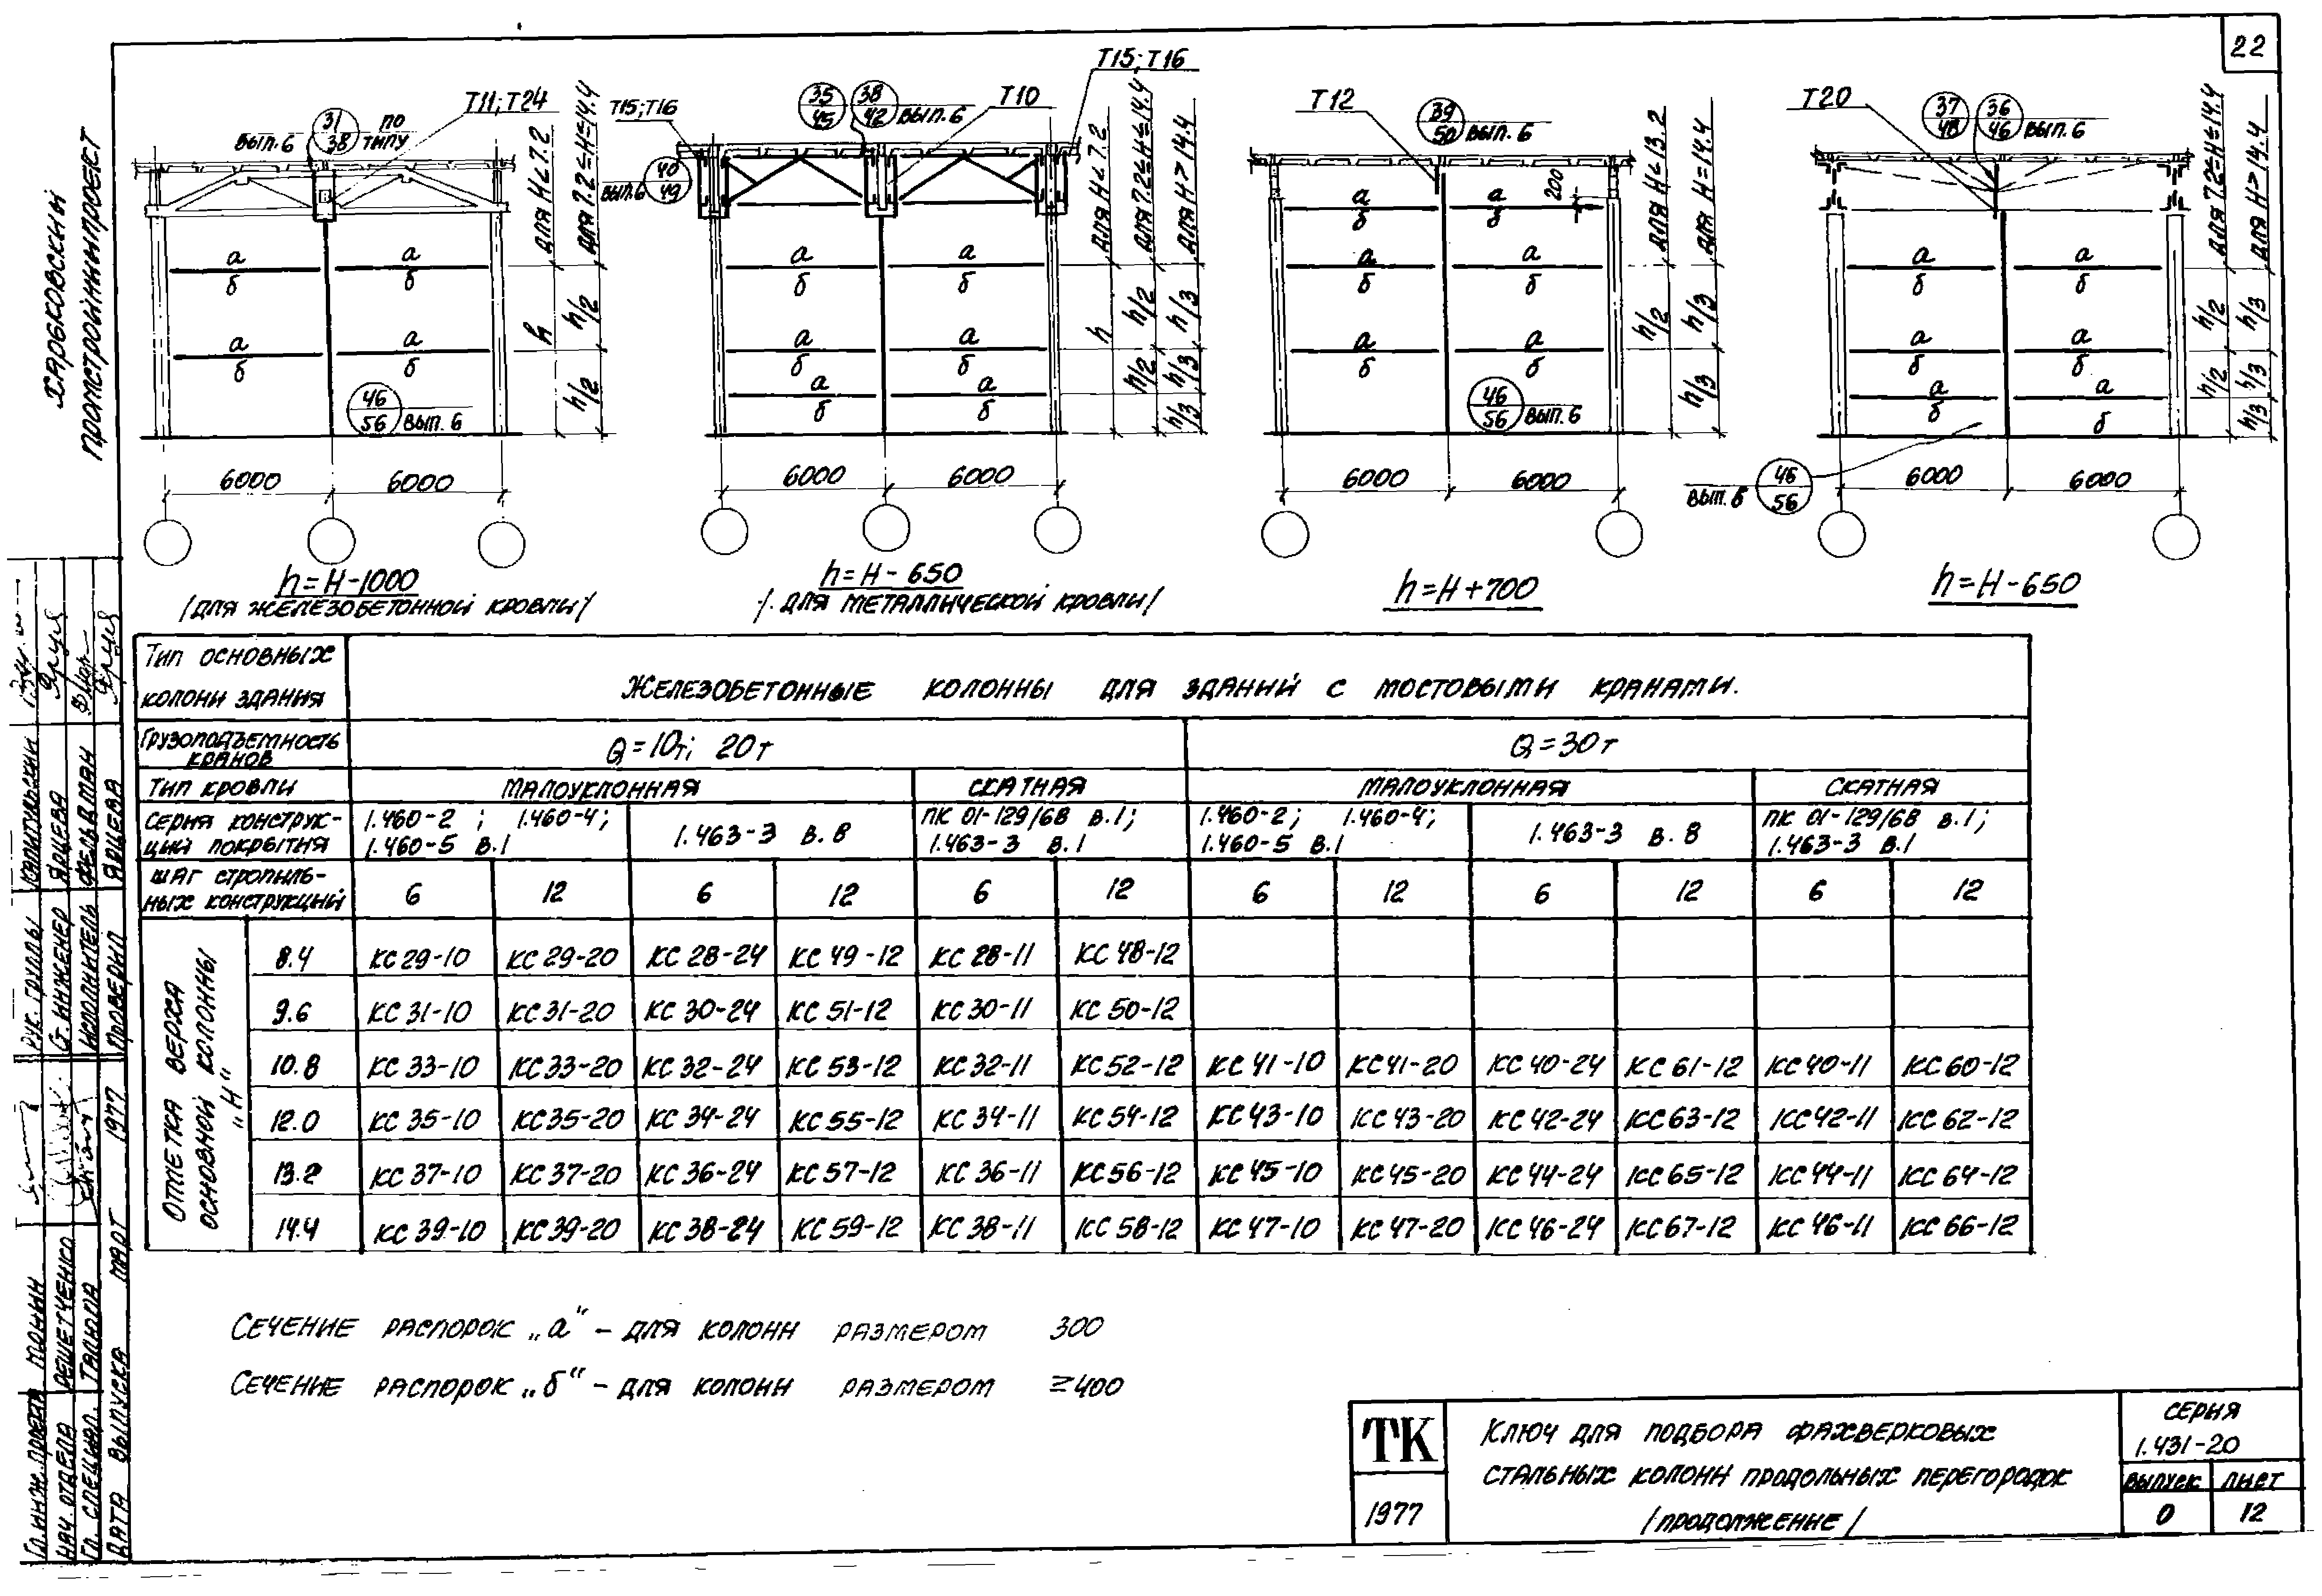 22
ХАРЬКОВСКИЙ
ПРОМСТРОЙНИИПРОЕКТ
Т11;Т24
31
38
ВЫП.6
ПО
ТИПУ
ДЛЯ H<7.2
ДЛЯ 7.2≤H≤14.4
а
б
а
б
а
б
а
б
h
h/2
h/2
46
56
ВЫП.6
6000
6000
h=H-1000
/ДЛЯ ЖЕЛЕЗОБЕТОННОЙ КРОВЛИ/
Т15;Т16
35
45
38
42
ВЫП.6
Т10
Т15;Т16
40
49
ВЫП.6
ДЛЯ H<7.2
ДЛЯ 7.2≤H≤14.4
ДЛЯ H>14.4
а
б
а
б
а
б
а
б
а
б
а
б
h
h/2
h/2
h/3
h/3
h/3
6000
6000
h=H-650
/ДЛЯ МЕТАЛЛИЧЕСКОЙ КРОВЛИ/
Т12
39
50
ВЫП.6
200
ДЛЯ H<13.2
ДЛЯ H=14.4
а
б
а
б
а
б
а
б
а
б
а
б
h/2
h/3
h/3
46
56
ВЫП.6
6000
6000
h=H+700
Т20
37
48
36
46
ВЫП.6
ДЛЯ 7.2≤H≤14.4
ДЛЯ H>14.4
а
б
а
б
а
б
а
б
а
б
а
б
h/2
h/2
h/3
h/3
h/3
46
56
ВЫП.6
6000
6000
h=H-650
ТИП ОСНОВНЫХ
КОЛОНН ЗДАНИЯ
ЖЕЛЕЗОБЕТОННЫЕ КОЛОННЫ ДЛЯ ЗДАНИЙ С МОСТОВЫМИ КРАНАМИ.
ГРУЗОПОДЪЕМНОСТЬ
КРАНОВ
Q=10т; 20т
Q=30т
ТИП КРОВЛИ
МАЛОУКЛОННАЯ
СКАТНАЯ
МАЛОУКЛОННАЯ
СКАТНАЯ
СЕРИЯ КОНСТРУК-
ЦИЙ ПОКРЫТИЯ
1.460-2; 1.460-4;
1.460-5 в.1
1.463-3 в.8
ПК 01-129/68 в.1;
1.463-3 в.1
1.460-2; 1.460-4;
1.460-5 в.1
1.463-3 в.8
ПК 01-129/68 в.1;
1.463-3 в.1
ШАГ СТРОПИЛЬ-
НЫХ КОНСТРУКЦИЙ
6 12 6 12 6 12 6 12 6 12 6 12
ОТМЕТКА ВЕРХА
ОСНОВНОЙ КОЛОННЫ
„H“
8.4 КС29-10 КС29-20 КС28-24 КС49-12 КС28-11 КС48-12
9.6 КС31-10 КС31-20 КС30-24 КС51-12 КС30-11 КС50-12
10.8 КС33-10 КС33-20 КС32-24 КС53-12 КС32-11 КС52-12 КС41-10 КС41-20 КС40-24 КС61-12 КС40-11 КС60-12
12.0 КС35-10 КС35-20 КС34-24 КС55-12 КС34-11 КС54-12 КС43-10 КС43-20 КС42-24 КС63-12 КС42-11 КС62-12
13.2 КС37-10 КС37-20 КС36-24 КС57-12 КС36-11 КС56-12 КС45-10 КС45-20 КС44-24 КС65-12 КС44-11 КС64-12
14.4 КС39-10 КС39-20 КС38-24 КС59-12 КС38-11 КС58-12 КС47-10 КС47-20 КС46-24 КС67-12 КС46-11 КС66-12
СЕЧЕНИЕ РАСПОРОК „а“ - ДЛЯ КОЛОНН РАЗМЕРОМ 300
СЕЧЕНИЕ РАСПОРОК „б“ - ДЛЯ КОЛОНН РАЗМЕРОМ ≥400
ТК
1977
КЛЮЧ ДЛЯ ПОДБОРА ФАХВЕРКОВЫХ
СТАЛЬНЫХ КОЛОНН ПРОДОЛЬНЫХ ПЕРЕГОРОДОК
/ПРОДОЛЖЕНИЕ/
СЕРИЯ
1.431-20
ВЫПУСК ЛИСТ
0 12
ГЛ.ИНЖ.ПРОЕКТА
НАЧ.ОТДЕЛА РЕШЕТЧЕНКО
ГЛ.СПЕЦИАЛ.
ДАТА ВЫПУСКА МАРТ 1977
РУК.ГРУППЫ
СТ.ИНЖЕНЕР ЯРЦЕВА
ИСПОЛНИТЕЛЬ ФЕЛЬДМАН
ПРОВЕРИЛ ЯРЦЕВА